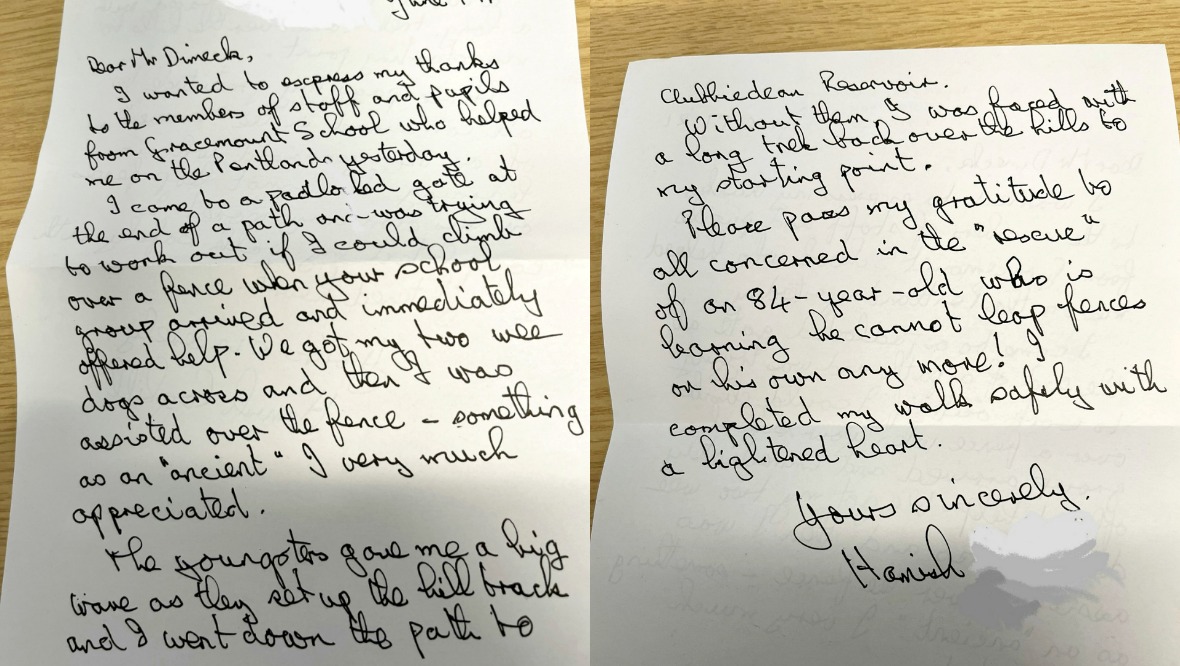 June
Dear Mr Dimeck,
I wanted to express my thanks
to the members of staff and pupils
from Gracemount School who helped
me on the Pentlands yesterday.
I came to a padlocked gate at
the end of a path and was trying
to work out if I could climb
over a fence when your school
group arrived and immediately
offered help. We got my two wee
dogs across and then I was
assisted over the fence – something
as an "ancient" I very much
appreciated.
The youngsters gave me a big
wave as they set up the hill track
and I went down the path to
Clubbiedean Reservoir.
Without them I was faced with
a long trek back over the hills to
my starting point.
Please pass my gratitude to
all concerned in the "rescue"
of an 84-year-old who is
learning he cannot leap fences
on his own any more! I
completed my walk safely with
a lightened heart.
Yours sincerely.
Hamish